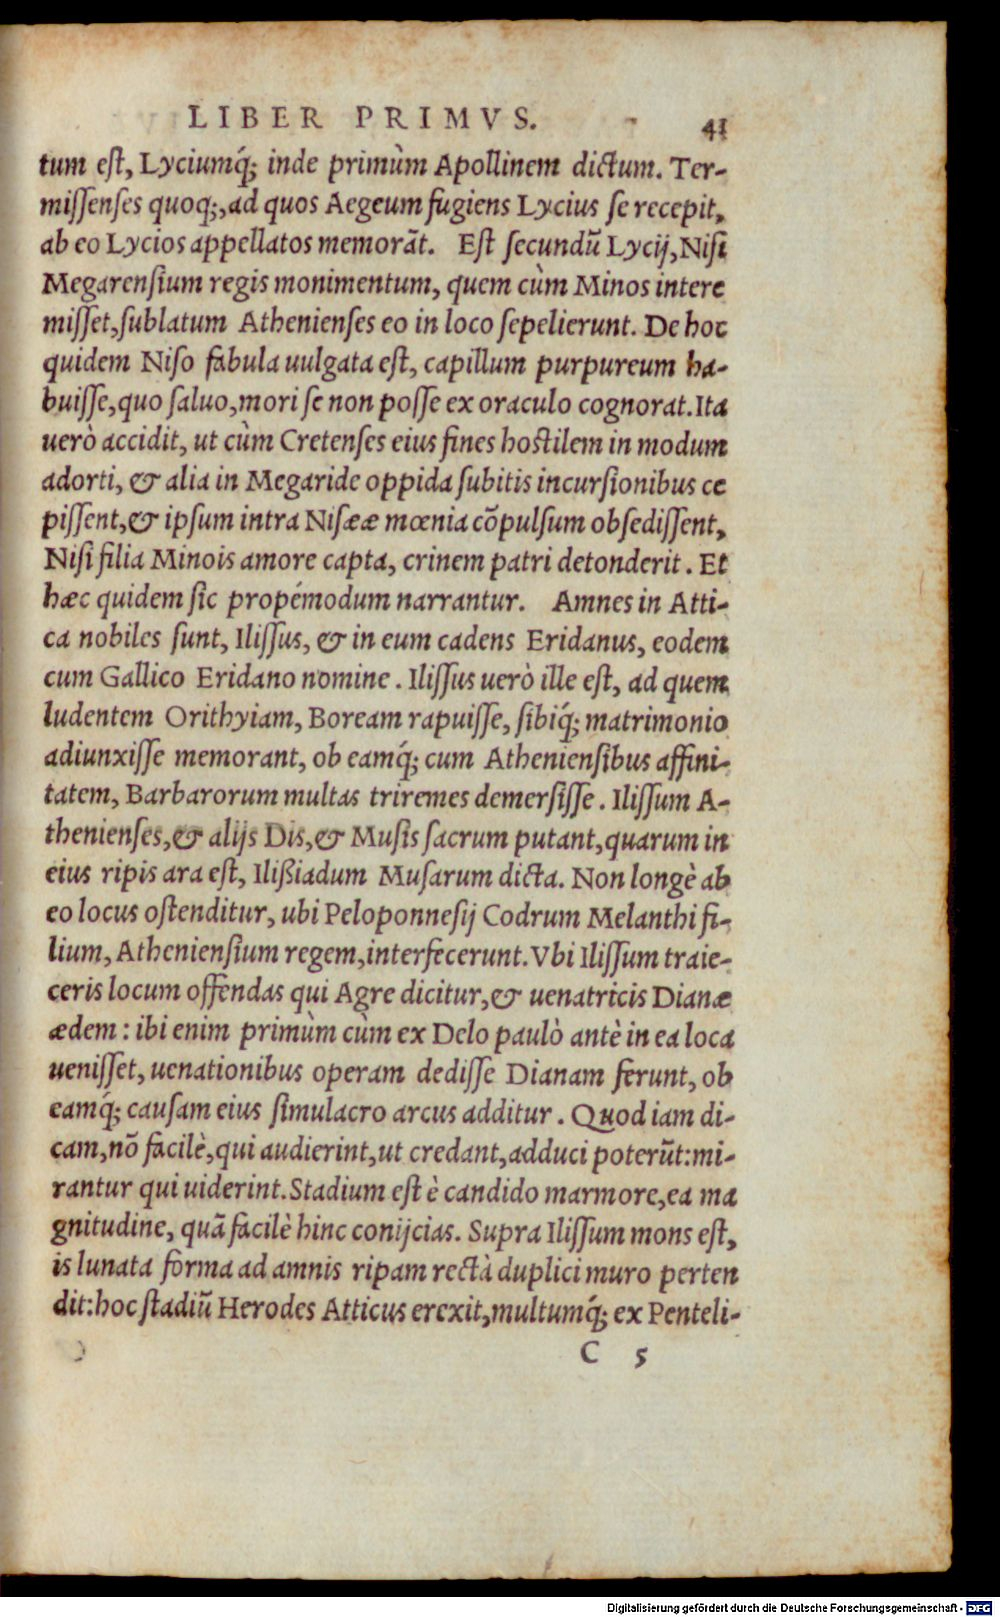 LIBER PRIMVS. 41
tum eſt, Lyciumq́; inde primùm Apollinem dictum. Ter-
miſſenſes quoq;, ad quos Aegeum fugiens Lycius ſe recepit,
ab eo Lycios appellatos memorāt. Eſt ſecundū Lycij, Niſi
Megarenſium regis monimentum, quem cùm Minos intere
miſſet, ſublatum Athenienſes eo in loco ſepelierunt. De hoc
quidem Niſo fabula uulgata eſt, capillum purpureum ha-
buiſſe, quo ſaluo, mori ſe non poſſe ex oraculo cognorat. Ita
uerò accidit, ut cùm Cretenſes eius fines hoſtilem in modum
adorti, & alia in Megaride oppida ſubitis incurſionibus ce
piſſent, & ipſum intra Niſææ mœnia cōpulſum obſediſſent,
Niſi filia Minois amore capta, crinem patri detonderit. Et
hæc quidem ſic propémodum narrantur. Amnes in Atti-
ca nobiles ſunt, Iliſſus, & in eum cadens Eridanus, eodem
cum Gallico Eridano nomine. Iliſſus uerò ille eſt, ad quem
ludentem Orithyiam, Boream rapuiſſe, ſibiq́; matrimonio
adiunxiſſe memorant, ob eamq́; cum Athenienſibus affini-
tatem, Barbarorum multas triremes demerſiſſe. Iliſſum A-
thenienſes, & alijs Dis, & Muſis ſacrum putant, quarum in
eius ripis ara eſt, Ilißiadum Muſarum dicta. Non longè ab
eo locus oſtenditur, ubi Peloponneſij Codrum Melanthi fi-
lium, Athenienſium regem, interfecerunt. Vbi Iliſſum traie-
ceris locum offendas qui Agre dicitur, & uenatricis Dianæ
ædem: ibi enim primùm cùm ex Delo paulò antè in ea loca
ueniſſet, uenationibus operam dediſſe Dianam ferunt, ob
eamq́; cauſam eius ſimulacro arcus additur. Quod iam di-
cam, nō facilè, qui audierint, ut credant, adduci poterūt: mi-
rantur qui uiderint. Stadium eſt è candido marmore, ea ma
gnitudine, quā facilè hinc conijcias. Supra Iliſſum mons eſt,
is lunata forma ad amnis ripam rectà duplici muro perten
dit: hoc ſtadiū Herodes Atticus erexit, multumq́; ex Penteli-
C 5
Digitalisierung gefördert durch die Deutsche Forschungsgemeinschaft - DFG